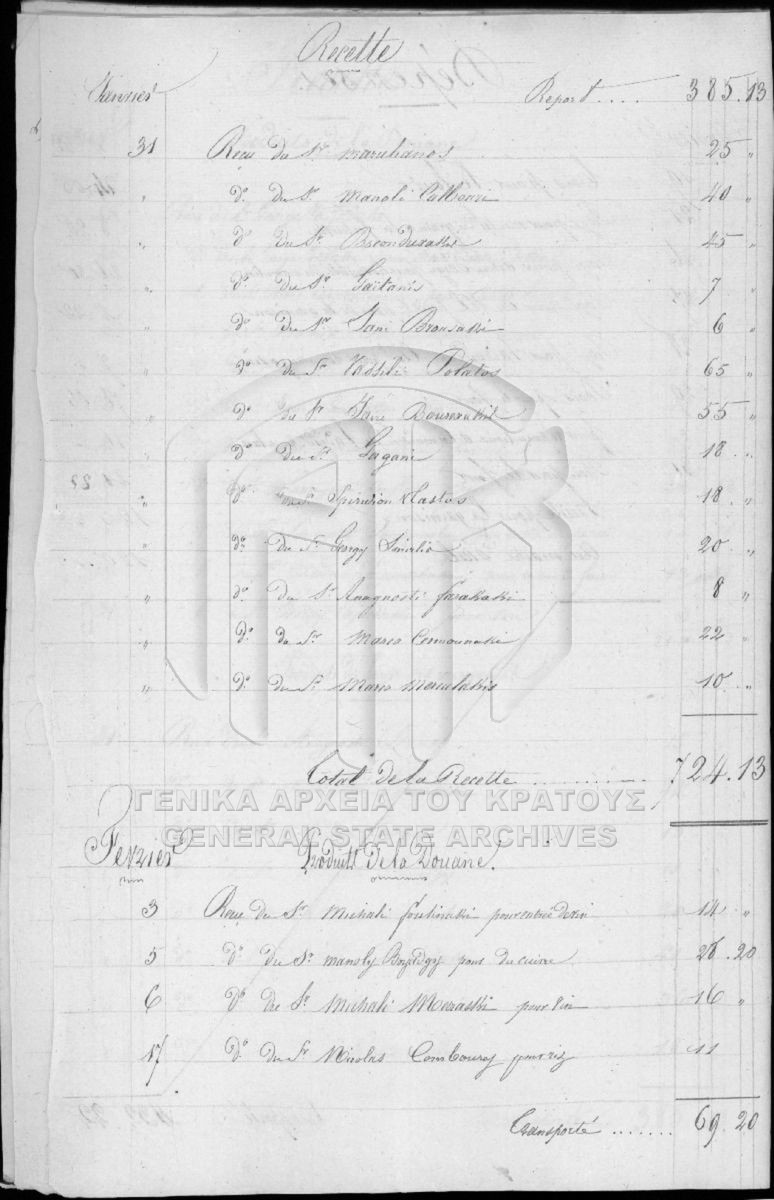 Recette
Janvier Report .... 385.13
31 Recu du Sr. Marulianos 25 "
" do. du Sr. Manoli 40 "
" do. du Sr. 45 "
" do. du Sr. Gaëtanis 7 "
" do. du Sr. Jani 6 "
" do. du Sr. Vassili Polatos 65 "
" do. du Sr. Jani 55 "
" do. du Sr. Gagani 18 "
" do. du Sr. Spiridion Vlastos 18 "
" do. du Sr. Georgy 20 "
" do. du Sr. Anagnosti 8 "
" do. du Sr. Marco 22 "
" do. du Sr. Marco 10 "
Total de la Recette ........ 724.13
ΓΕΝΙΚΑ ΑΡΧΕΙΑ ΤΟΥ ΚΡΑΤΟΥΣ
GENERAL STATE ARCHIVES
Fevrier Produits de la Douane.
3 Recu du Sr. Michali pour entrée de vin 14 "
5 do. du Sr. Manoly pour du cuivre 28.20
6 do. du Sr. Michali pour vin 16 "
17 do. du Sr. Nicolas pour riz 11
Transporté ....... 69.20